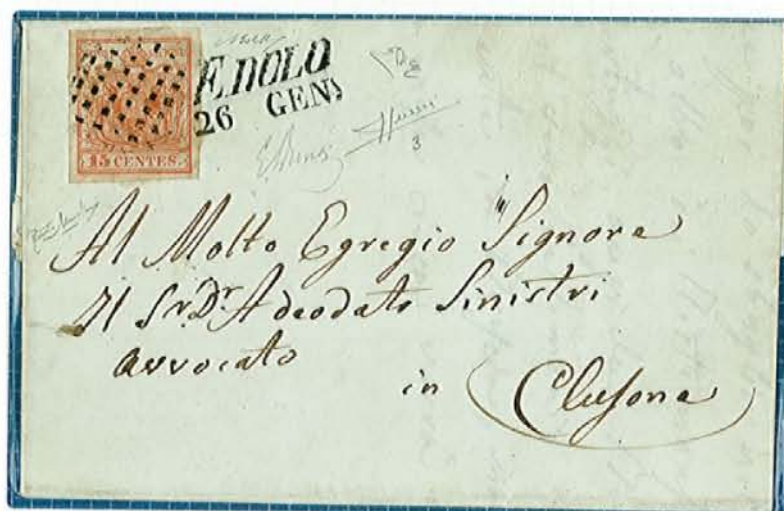 15 CENTES.
EDOLO
26 GEN.
3
Al Molto Egregio Signore
Il Sr. Dr. Adeodato Sinistri
Avvocato
in Clusone